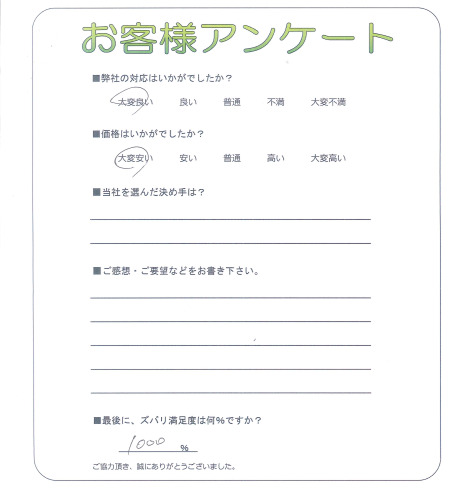 お客様アンケート
■弊社の対応はいかがでしたか？
大変良い 良い 普通 不満 大変不満
■価格はいかがでしたか？
大変安い 安い 普通 高い 大変高い
■当社を選んだ決め手は？
■ご感想・ご要望などをお書き下さい。
■最後に、ズバリ満足度は何％ですか？
1000 ％
ご協力頂き、誠にありがとうございました。